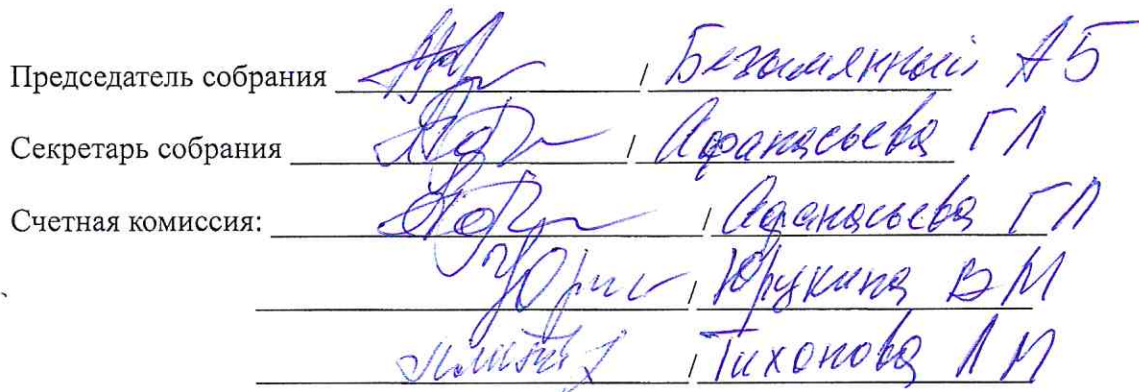 Председатель собрания / Безымянный А Б
Секретарь собрания / Афанасьева Г Л
Счетная комиссия: / Афанасьева Г Л
/ Юрукина В М
/ Тихонова Л М